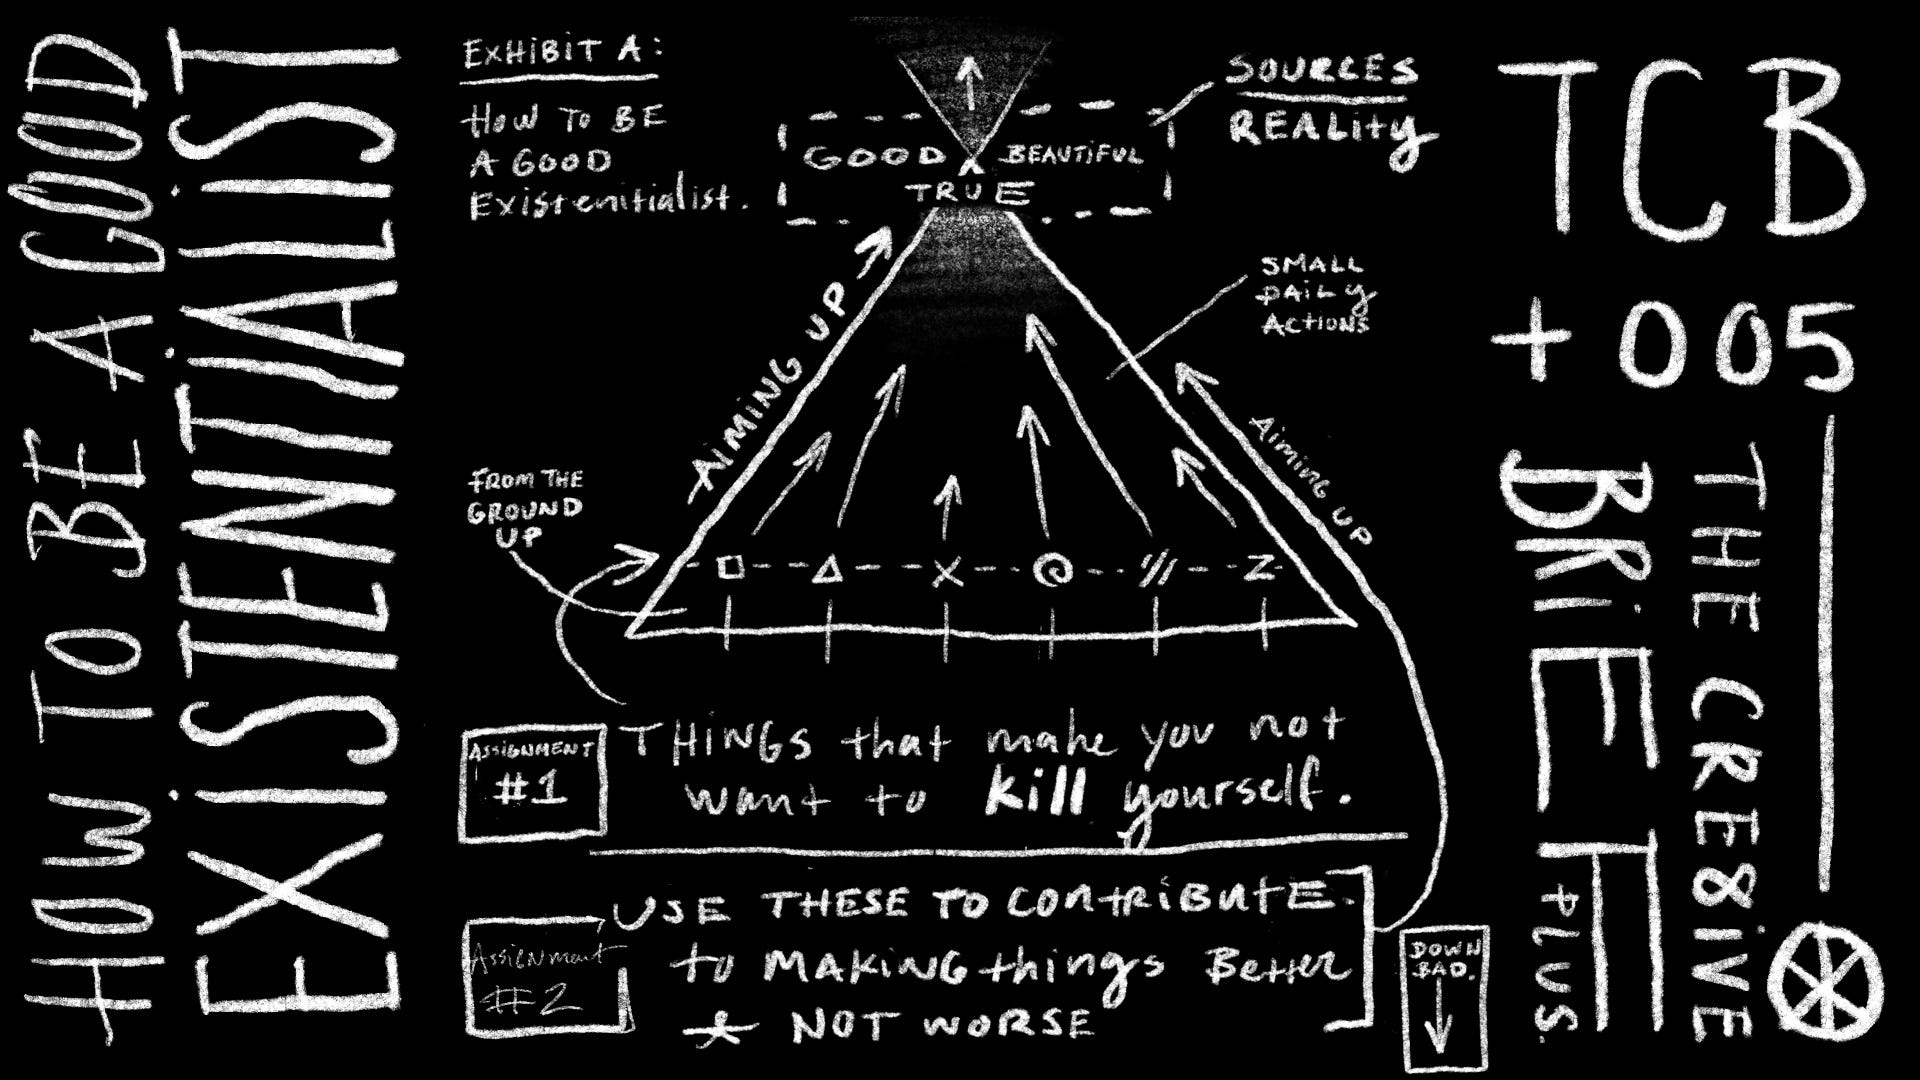 HOW TO BE A GOOD
EXISTENTIALIST
EXHIBIT A:
HOW TO BE
A GOOD
Existenitialist.
SOURCES
REALity
GOOD
BEAUTIFUL
TRUE
AIMING UP
SMALL
DAILY
ACTIONS
Aiming UP
FROM THE
GROUND
UP
Z
ASSIGNMENT
#1
THINGS that make you not
want to kill yourself.
ASSIGNMENT
#2
USE THESE TO CONTRIBUTE
to MAKING things Better
& NOT WORSE
DOWN
BAD.
TCB
+005
THE CRE8IVE
BRIEF
PLUS.